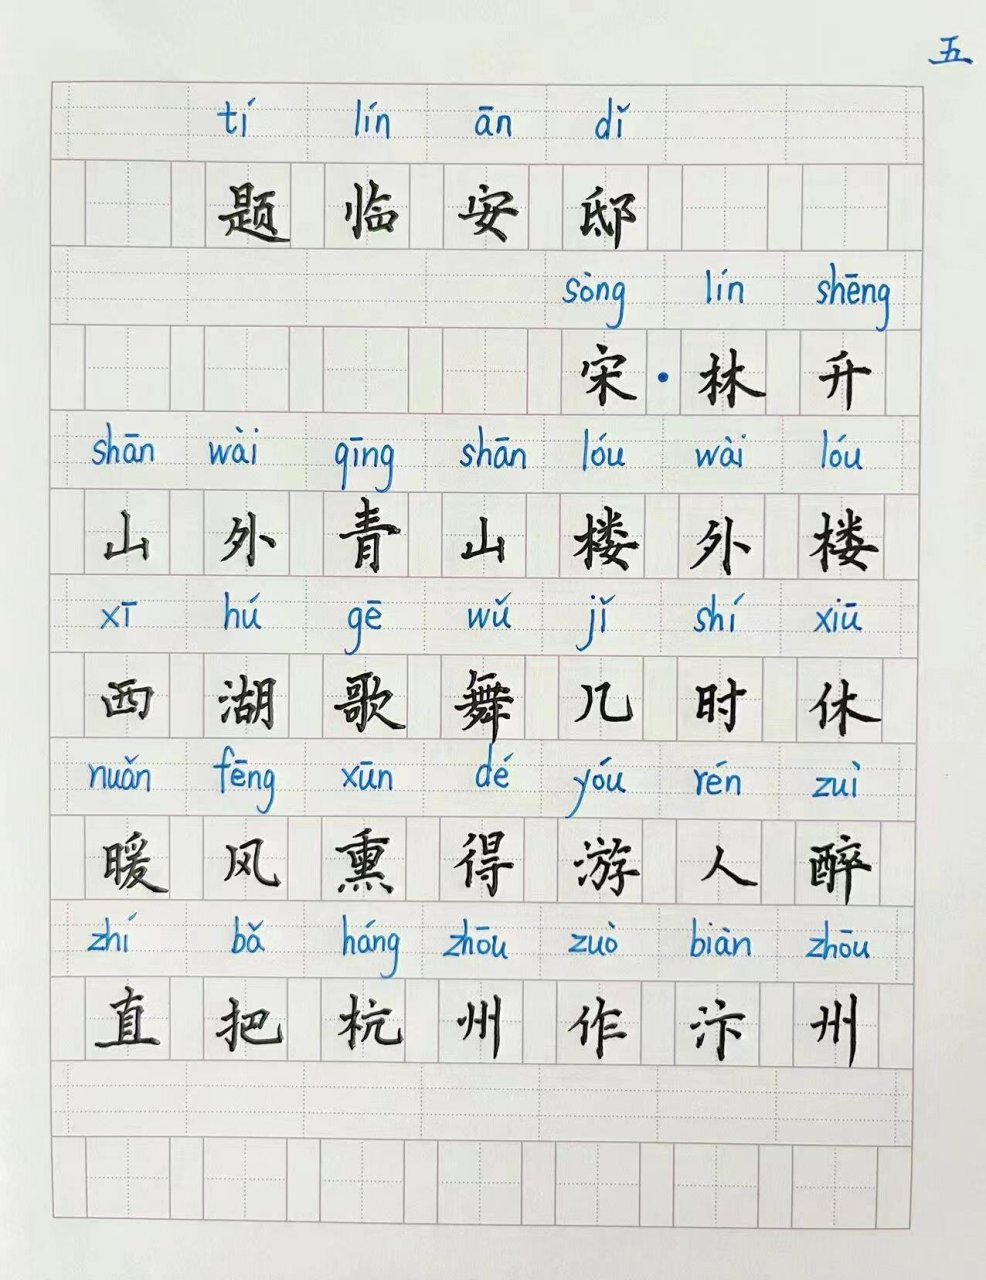 五
tí lín ān dǐ
题临安邸
sòng lín shēng
宋·林升
shān wài qīng shān lóu wài lóu
山外青山楼外楼
xī hú gē wǔ jǐ shí xiū
西湖歌舞几时休
nuǎn fēng xūn dé yóu rén zuì
暖风熏得游人醉
zhí bǎ háng zhōu zuò biàn zhōu
直把杭州作汴州